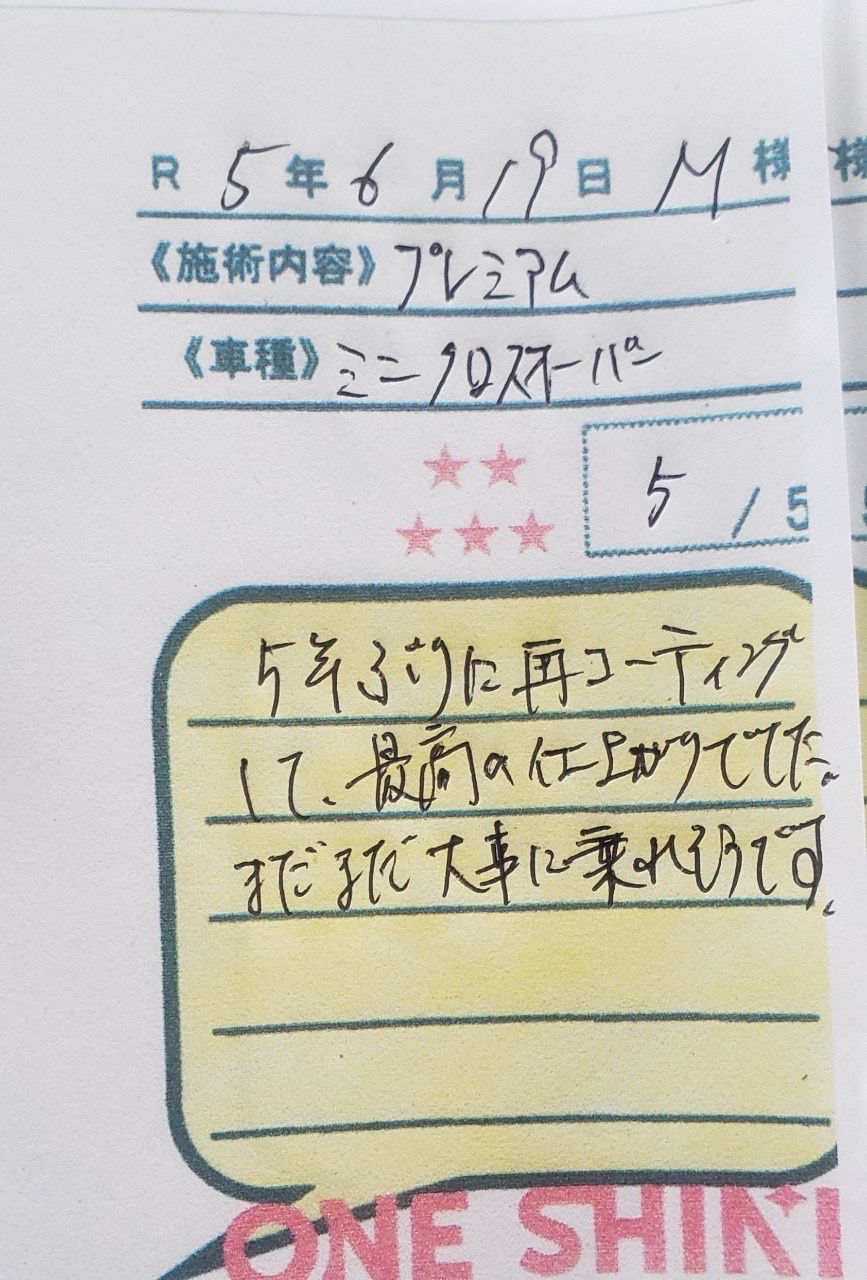 R 5年6月19日 M様
《施術内容》プレミアム
《車種》ミニクロスオーバー
5/5
5年ぶりに再コーティング
して、最高の仕上がりででた。
まだまだ大事に乗れそうです。
ONE SHIN